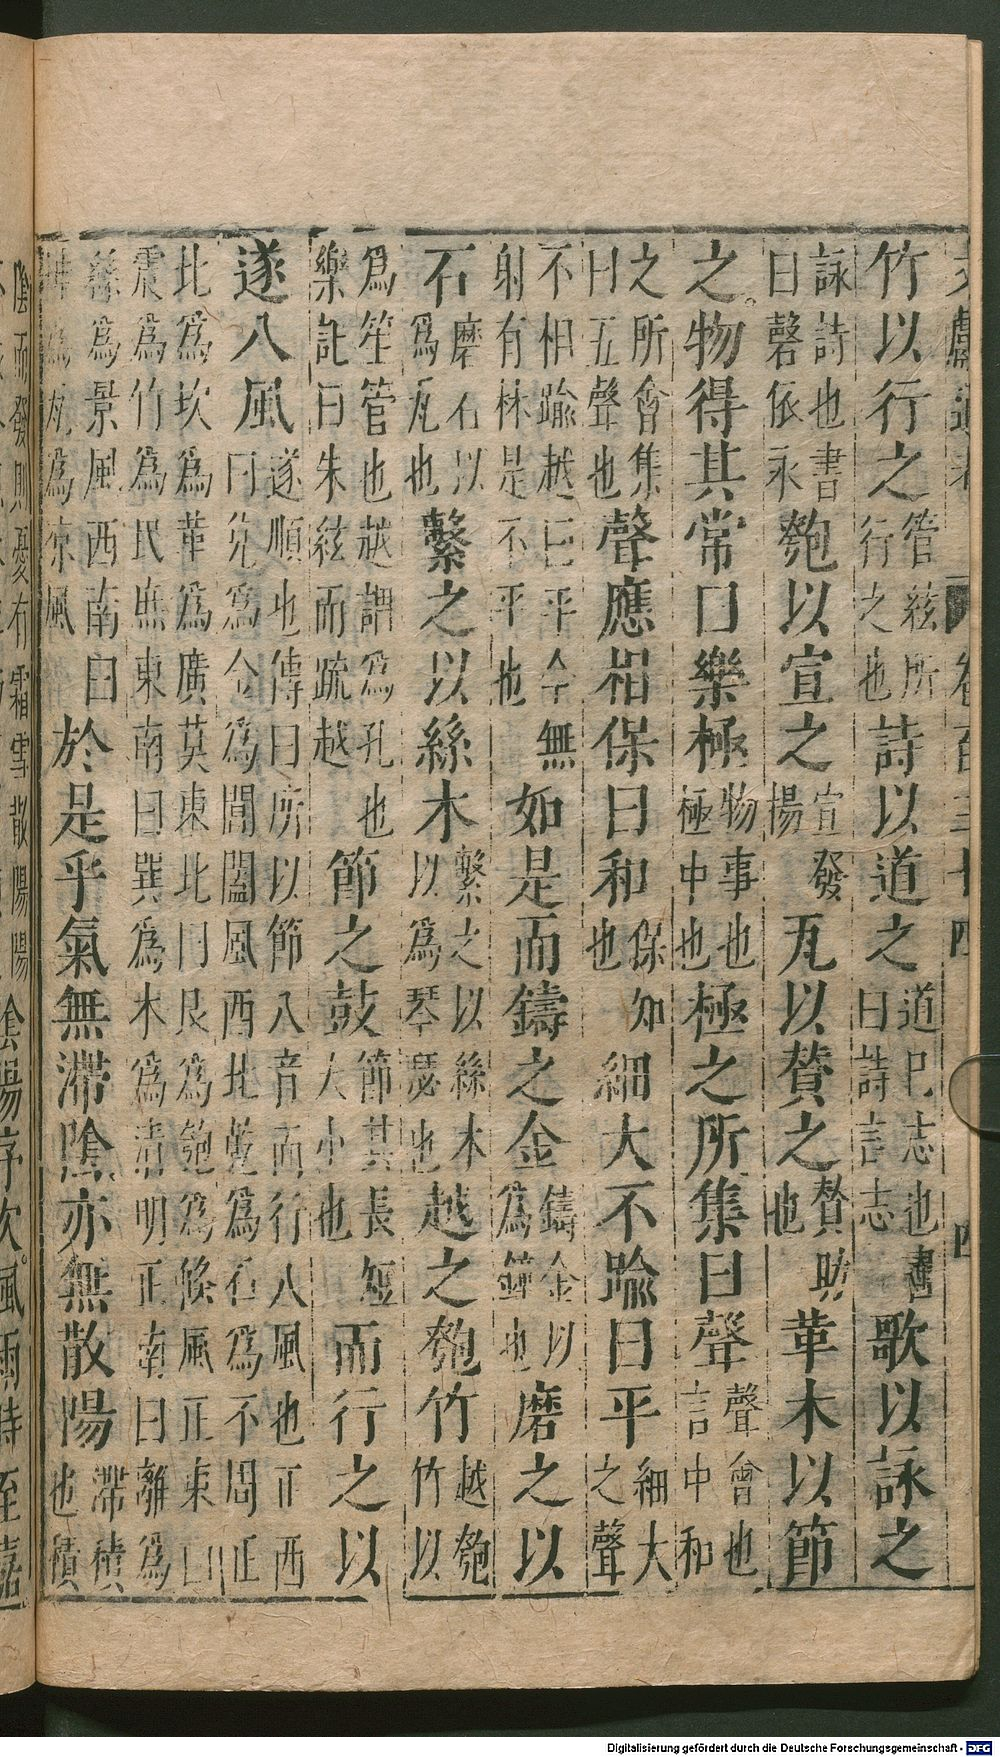 文獻通考 卷百三十四 四
竹以行之管絃所行之也詩以道之道己志也書曰詩言志歌以詠之
詠詩也書曰聲依永匏以宣之宣發揚瓦以贊之贊助也革木以節
之物得其常曰樂極物事也極中也極之所集曰聲聲會也言中和
之所會集曰五聲也聲應相保曰和保知也細大不踰曰平細大之聲
不相踰越曰平今無射有林是不平也如是而鑄之金鑄金以為鐘也磨之以
石磨石以為瓦也繫之以絲木繫之以絲木以為琴瑟也越之匏竹越匏竹以
為笙管也越謂為孔也樂記曰朱絃而疏越節之鼓節其長短大小也而行之以
遂八風遂順也傳曰所以節八音而行八風也正西曰兌為金為閶闔風西北乾為石為不周正
北為坎為革為廣莫東北曰艮為匏為條風正東曰震為竹為民庶東南曰巽為木為清明正南曰離為
絲為景風西南曰坤為瓦為涼風於是乎氣無滯陰亦無散陽滯積也積
陰而發則夏有霜雪散陽陽陰陽序次風雨時至嘉
Digitalisierung gefördert durch die Deutsche Forschungsgemeinschaft - DFG